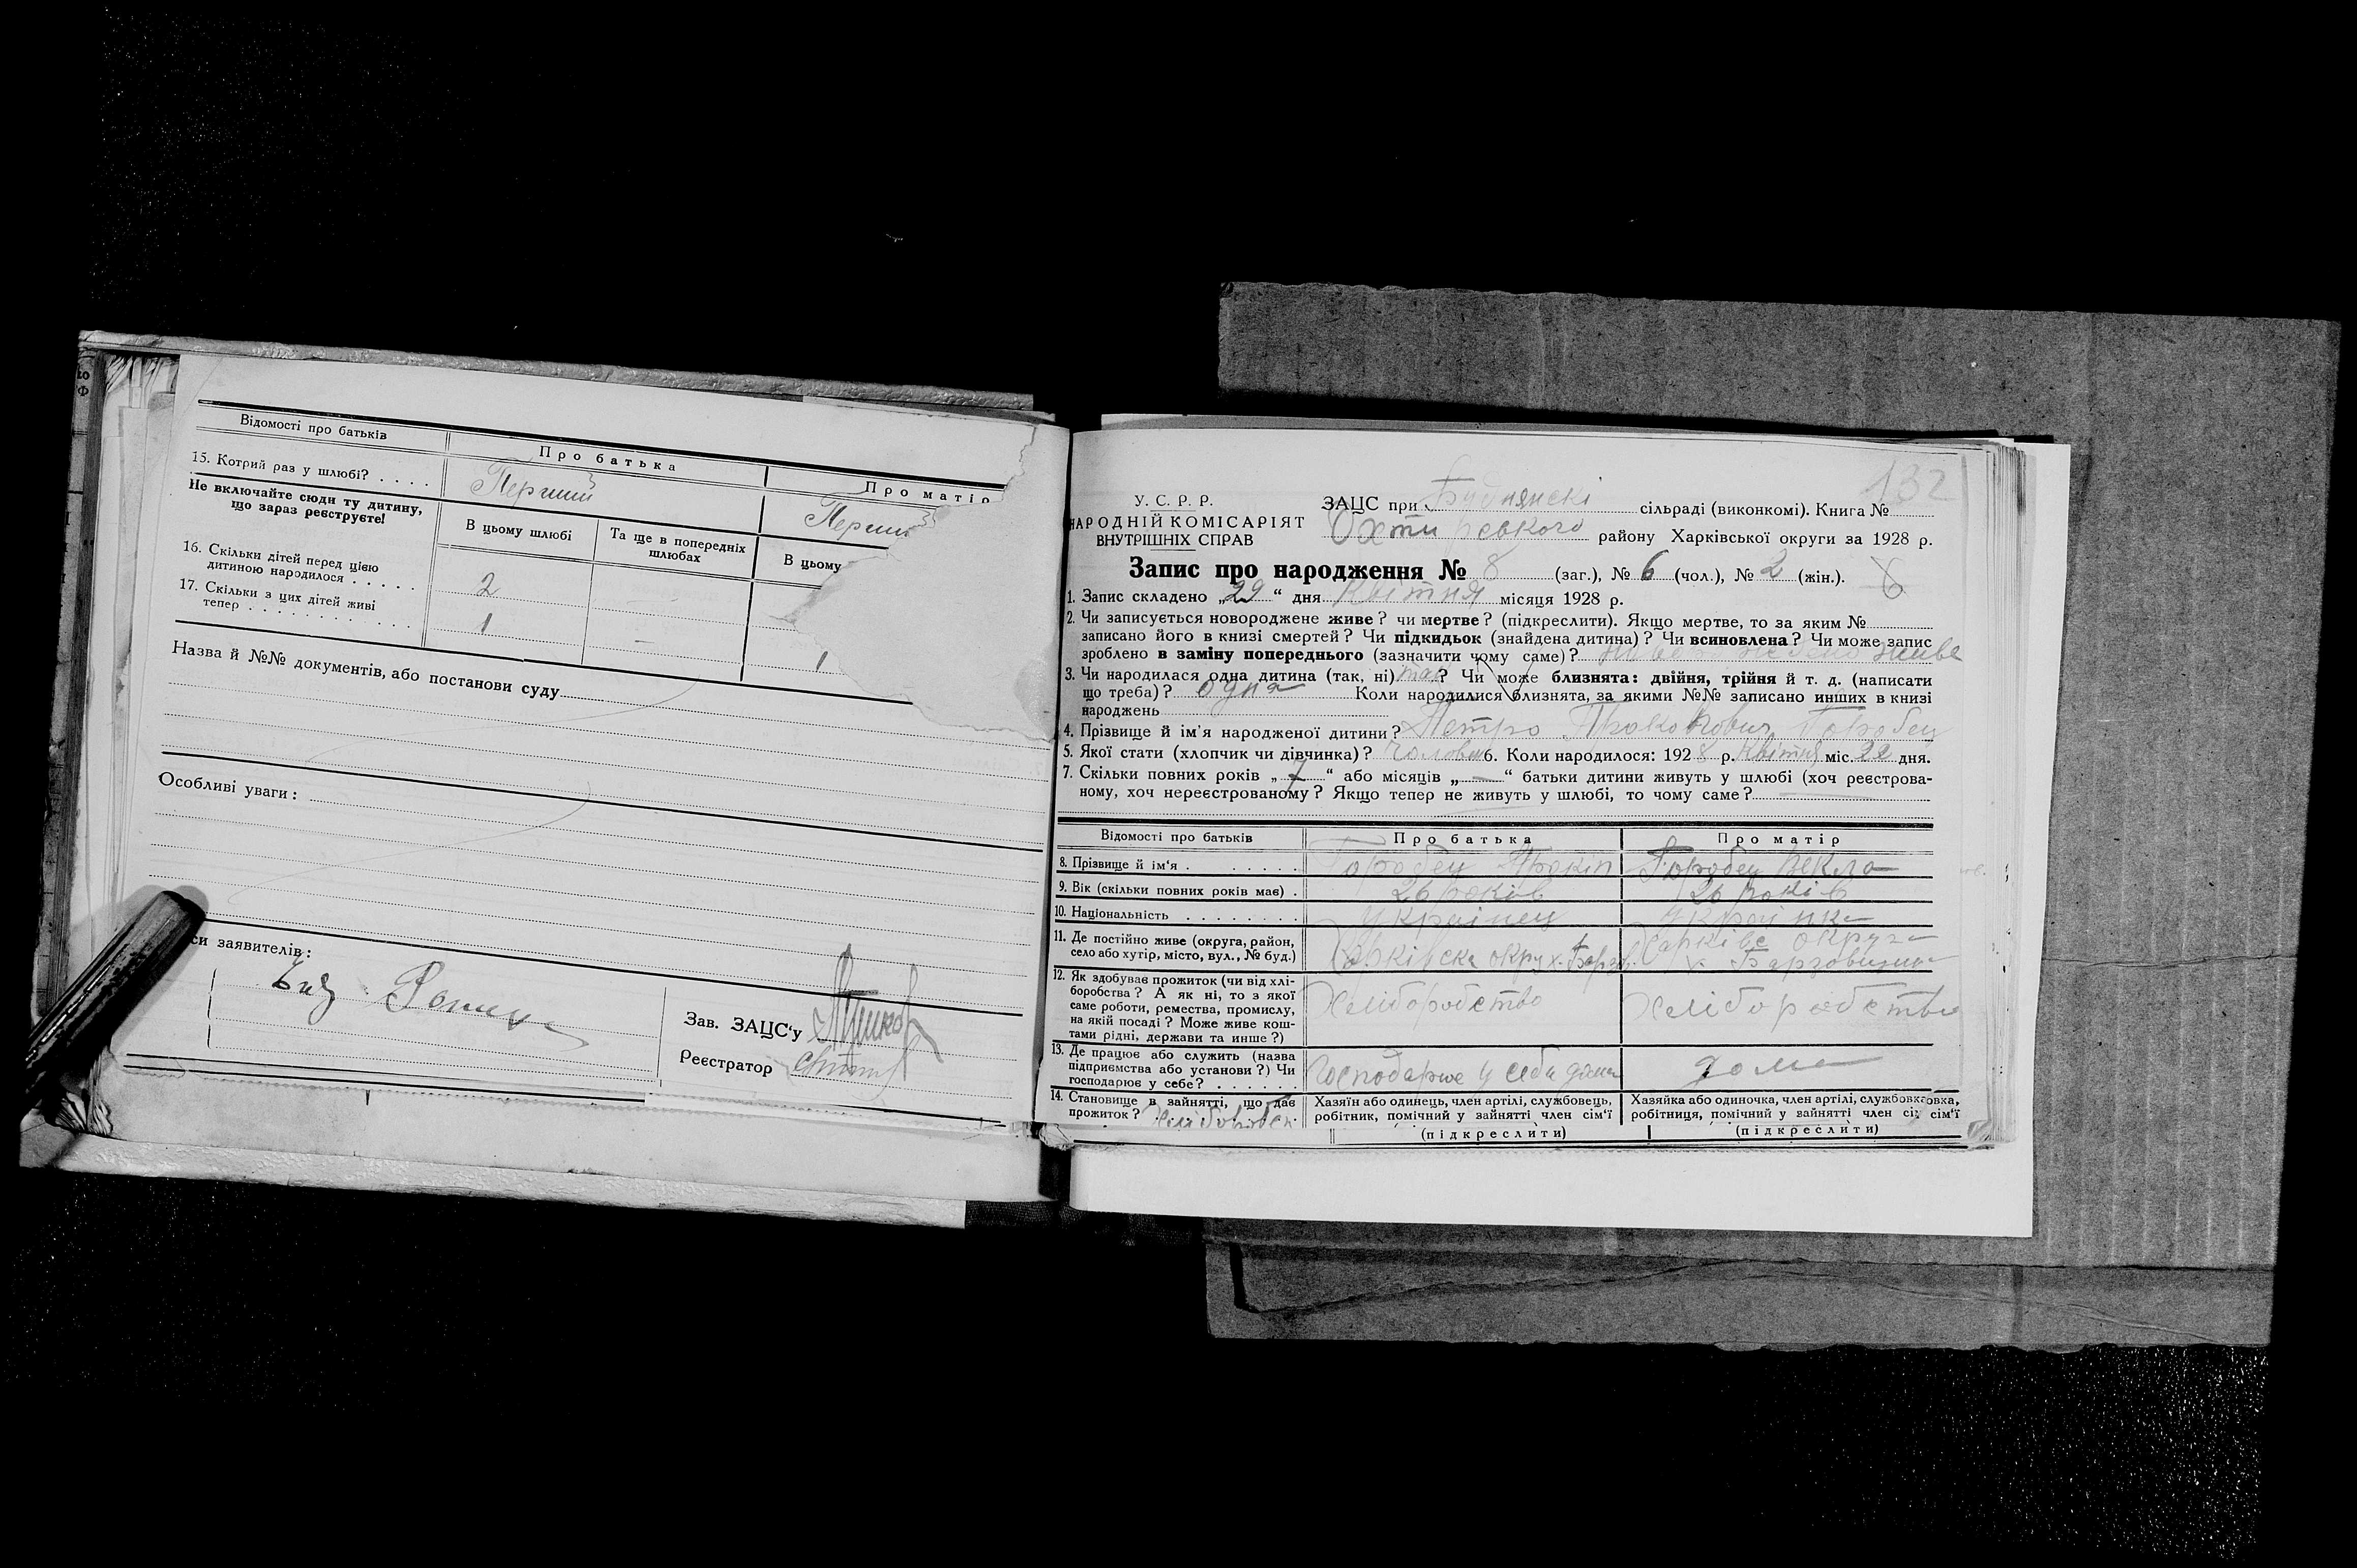 Відомості про батьків
Про батька
Про матір
15. Котрий раз у шлюбі? . . . .
Перший
Перший
Не включайте сюди ту дитину,
що зараз реєструєте!
В цьому шлюбі
Та ще в попередніх
шлюбах
В цьому
16. Скільки дітей перед цією
дитиною народилося . . . . .
2
17. Скільки з цих дітей живі
тепер . . . . . . . . . .
1
—
1
Назва й №№ документів, або постанови суду
Особливі уваги:
си заявителів:
Зав. ЗАЦС'у
Реєстратор
132
У. С. Р. Р.
НАРОДНІЙ КОМІСАРІЯТ
ВНУТРІШНІХ СПРАВ
ЗАЦС при Буднянскі сільраді (виконкомі). Книга №
Охтирського району Харківської округи за 1928 р.
Запис про народження № 8 (заг.), № 6 (чол.), № 2 (жін.). 8
1. Запис складено „29“ дня Квітня місяця 1928 р.
2. Чи записується новороджене живе? чи мертве? (підкреслити). Якщо мертве, то за яким №
записано його в книзі смертей? Чи підкидьок (знайдена дитина)? Чи всиновлена? Чи може запис
зроблено в заміну попереднього (зазначити чому саме)? живе
3. Чи народилася одна дитина (так, ні) так? Чи може близнята: двійня, трійня й т. д. (написати
що треба)? одна Коли народилися близнята, за якими №№ записано инших в книзі
народжень
4. Прізвище й ім'я народженої дитини? Петро Прокопович Горобец
5. Якої стати (хлопчик чи дівчинка)? чолович 6. Коли народилося: 1928 р. квітня міс. 22 дня.
7. Скільки повних років „7“ або місяців „—“ батьки дитини живуть у шлюбі (хоч реєстрова-
ному, хоч нереєстрованому? Якщо тепер не живуть у шлюбі, то чому саме?
Відомості про батьків
Про батька
Про матір
8. Прізвище й ім'я . . . . . . . .
Горобец Прокіп
Горобец Векла
9. Вік (скільки повних років має) .
26 років
26 років
10. Національність . . . . . . . .
Українец
Українка
11. Де постійно живе (округа, район,
село або хутір, місто, вул., № буд.)
Харківска окру х.
Харківс округа
х.
12. Як здобуває прожиток (чи від хлі-
боробства? А як ні, то з якої
саме роботи, ремества, промислу,
на якій посаді? Може живе кош-
тами рідні, держави та инше?)
Хеліборобство
Хеліборобство
13. Де працює або служить (назва
підприємства або установи?) Чи
господарює у себе? . . . . . . .
Господарює у себе дома
дома
14. Становище в зайнятті, що дає
прожиток? Хеліборобец
Хазяїн або одинець, член артілі, службовець,
робітник, помічний у зайнятті член сім'ї
(підкреслити)
Хазяйка або одиночка, член артілі, службовка,
робітниця, помічний у зайнятті член сім'ї
(підкреслити)